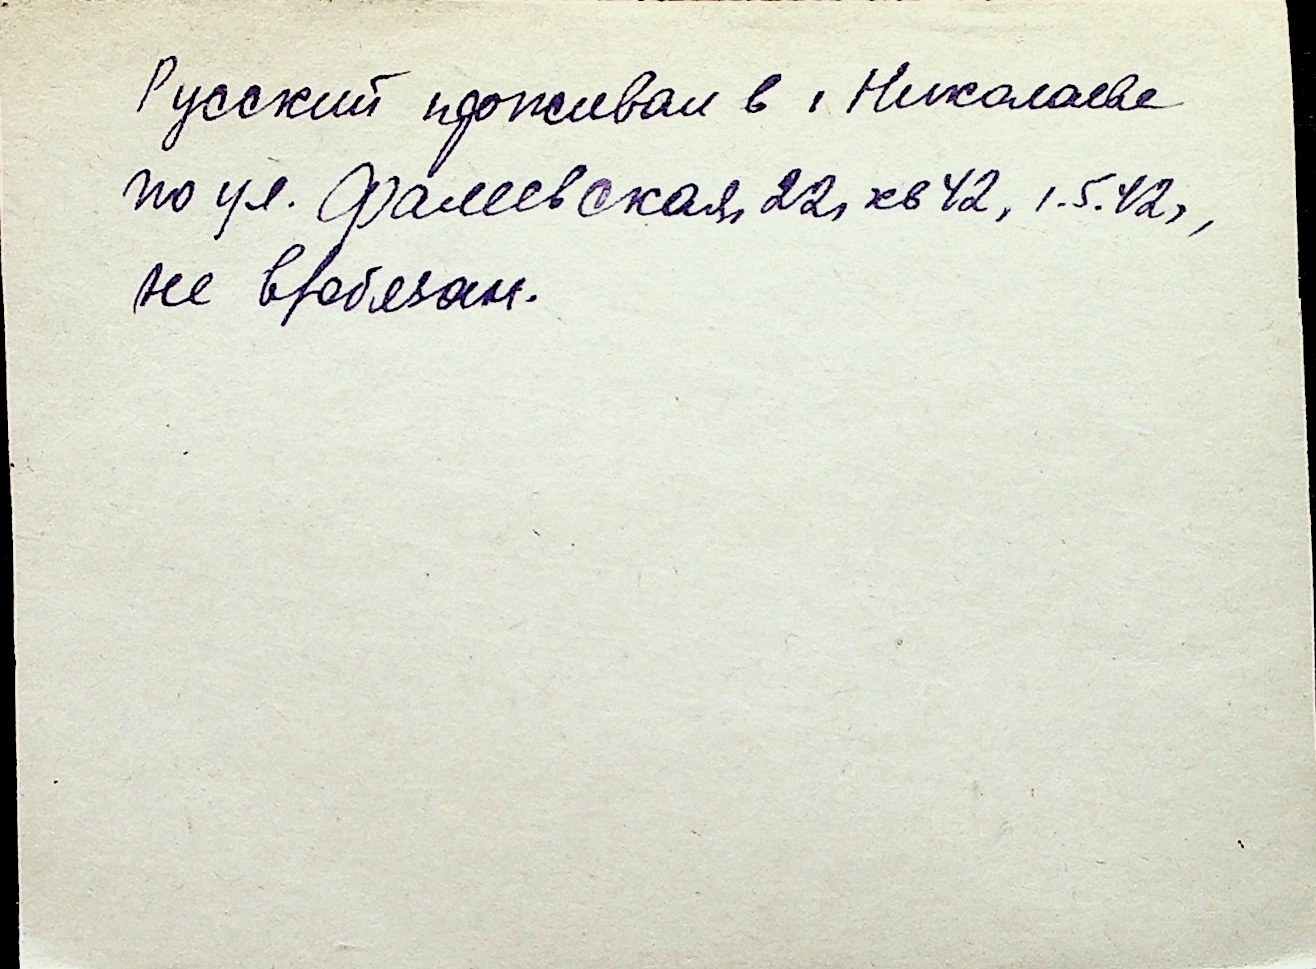 Русский проживал в г Николаеве
по ул. Фалеевская, 22, кв 42, 1.5.42г,
не в/обязан.